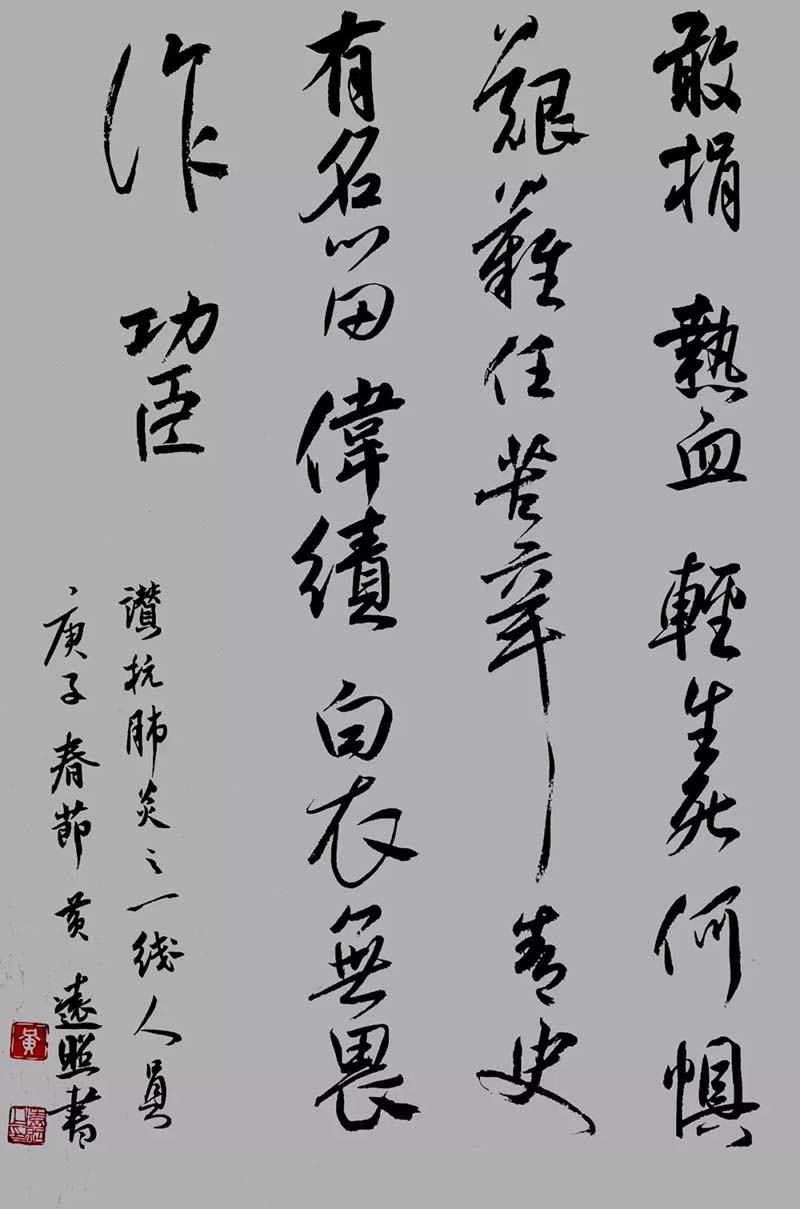 敢捐熱血輕生死何懼
艱難任苦辛青史
有名留偉績白衣無畏
作功臣
讚抗肺炎之一綫人員
庚子春節黄遠照書
黄